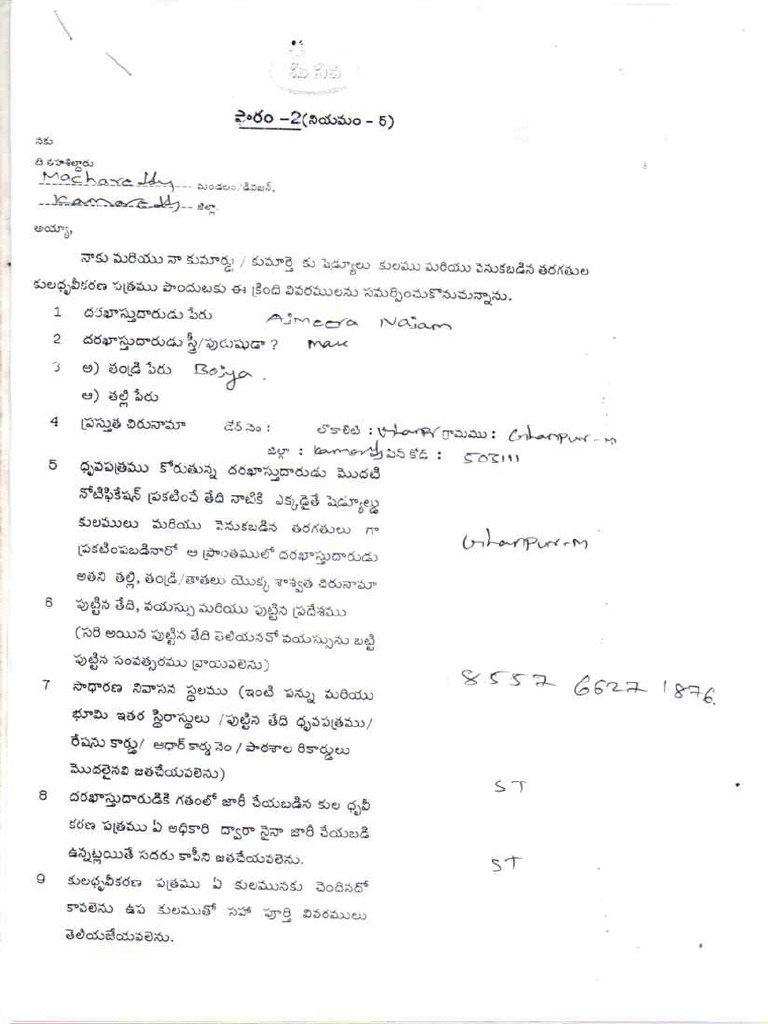 మీ సేవ
ఫారం -2(నియమం - 5)
నకు
ది తహశీల్దారు
Machareddy మండలం/డివిజన్.
Kamareddy జిల్లా.
అయ్యా,
నాకు మరియు నా కుమార్డు / కుమార్తె కు షెడ్యూలు కులము మరియు వెనుకబడిన తరగతుల
కులధృవీకరణ పత్రము పొందుటకు ఈ క్రింది వివరములను సమర్పించుకొనుచున్నాను.
1 దరఖాస్తుదారుడు పేరు Ajmeera
2 దరఖాస్తుదారుడు స్త్రీ/పురుషుడా ? Male
3 అ) తండ్రి పేరు
ఆ) తల్లి పేరు
4 ప్రస్తుత చిరునామా డోర్ నెం : లొకాలిటి : గ్రామము : Ghanpur-M
జిల్లా : Kamareddy పిన్ కోడ్ : 503111
5 ధృవపత్రము కోరుతున్న దరఖాస్తుదారుడు మొదటి
నోటిఫికేషన్ ప్రకటించే తేది నాటికి ఎక్కడైతే షెడ్యూల్డు
కులములు మరియు వెనుకబడిన తరగతులు గా
ప్రకటింపబడినారో ఆ ప్రాంతములో దరఖాస్తుదారుడు Ghanpur-M
అతని తల్లి, తండ్రి/తాతలు యొక్క శాశ్వత చిరునామా
6 పుట్టిన తేది, వయస్సు మరియు పుట్టిన ప్రదేశము
(సరి అయిన పుట్టిన తేది తెలియనచో వయస్సును బట్టి
పుట్టిన సంవత్సరము వ్రాయవలెను)
7 సాధారణ నివాసన స్థలము (ఇంటి పన్ను మరియు 8557 6627 1876.
భూమి ఇతర స్థిరాస్థులు /పుట్టిన తేది ధృవపత్రము/
రేషను కార్డు/ ఆధార్ కార్డు నెం / పాఠశాల రికార్డులు
మొదలైనవి జతచేయవలెను)
8 దరఖాస్తుదారుడికి గతంలో జారీ చేయబడిన కుల ధృవీ ST
కరణ పత్రము ఏ అధికారి ద్వారా నైనా జారీ చేయబడి
ఉన్నట్లయితే సదరు కాపీని జతచేయవలెను. ST
9 కులధృవీకరణ పత్రము ఏ కులమునకు చెందినదో
కావలెను ఉప కులముతో సహా పూర్తి వివరములు
తెలియజేయవలెను.